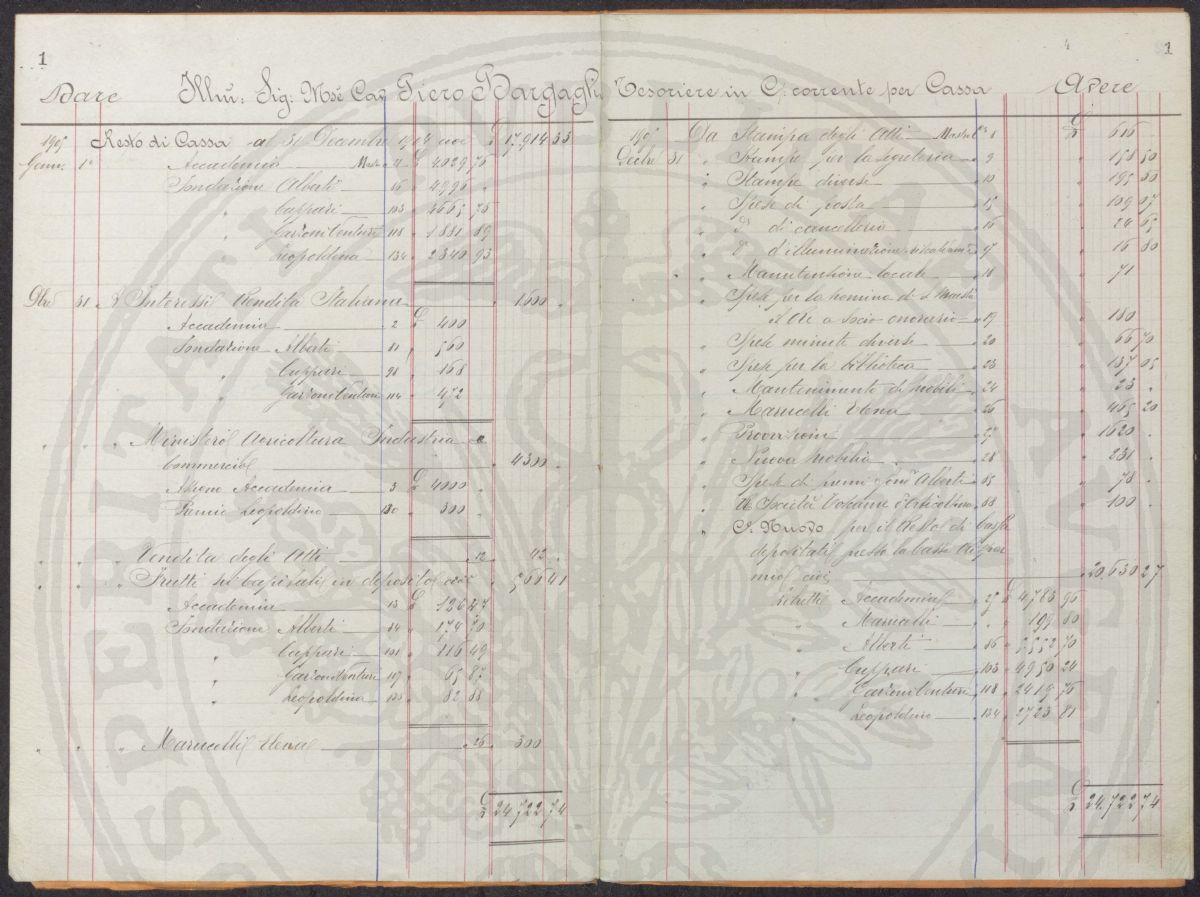 1
Dare Illmo: Sig: Mse Cav Piero Bargagli
1905 Resto di Cassa al 31 Dicembre 1904 cioè £ 17,914 33
Genn. 1° Accademia Mastro 11 £ 4029 76
Fondazione Alberti 86 " 4996 "
" Cuppari 103 " 4665 75
" Garzoni Venturi 118 " 1881 89
" Leopoldina 134 " 2340 93
Dbre 31 " Interessi Rendita Italiana " 1600 "
Accademia 2 £ 400
Fondazione Alberti 81 " 560
" Cuppari 98 " 168
" Garzoni Venturi 114 " 472
" " " Ministero Agricoltura Industria e
Commercio " 4300 "
Assegno Accademia 3 £ 4000 "
Premio Leopoldino 130 " 300 "
" " " Vendita degli Atti 12 " 42 "
" " " Frutti su Capitali in deposito cioè " 566 41
Accademia 13 £ 126 47
Fondazione Alberti 84 " 174 70
" Cuppari 101 " 116 49
" Garzoni Venturi 117 " 65 87
" Leopoldina 133 " 82 88
" " " Marucelli Elena 26 " 300
£ 24,722 74
1
Tesoriere in C/ corrente per Cassa Avere
1905 Da Stampa degli Atti Mastro C. 8 £ 616
Dicbre 31 " Stampe per la segreteria " 9 " 158 50
" Stampe diverse " 10 " 195 50
" Spese di posta " 15 " 109 07
" D° di cancelleria " 16 " 24 65
" D° d'illuminazione, riscaldamento " 17 " 16 80
" " Manutenzione locale " 18 " 71
" Spese per la nomina di S. Maestà
il Re a socio onorario " 19 " 180
" Spese minute diverse " 20 " 66 70
" Spese per la biblioteca " 23 " 137 05
" Mantenimento di mobili " 24 " 23 "
" Marucelli Elena " 26 " 465 20
" Provvisioni " 27 " 1620 "
" Nuova mobilia " 28 " 231 "
" Spese di premi fond. Alberti " 85 " 78 "
" Società Toscana d'Orticultura " 88 " 100 "
" C° Nuovo per il Resto di Cassa
depositati presso la Cassa di Rispar
mio, cioè " 20,630 27
Libretto Accademia " 27 £ 4783 96
" Marucelli " " " 199 80
" Alberti " 86 " 5552 70
" Cuppari " 103 " 4950 24
" Garzoni Venturi " 118 " 2419 76
" Leopoldino " 134 " 2723 81
£ 24,722 74